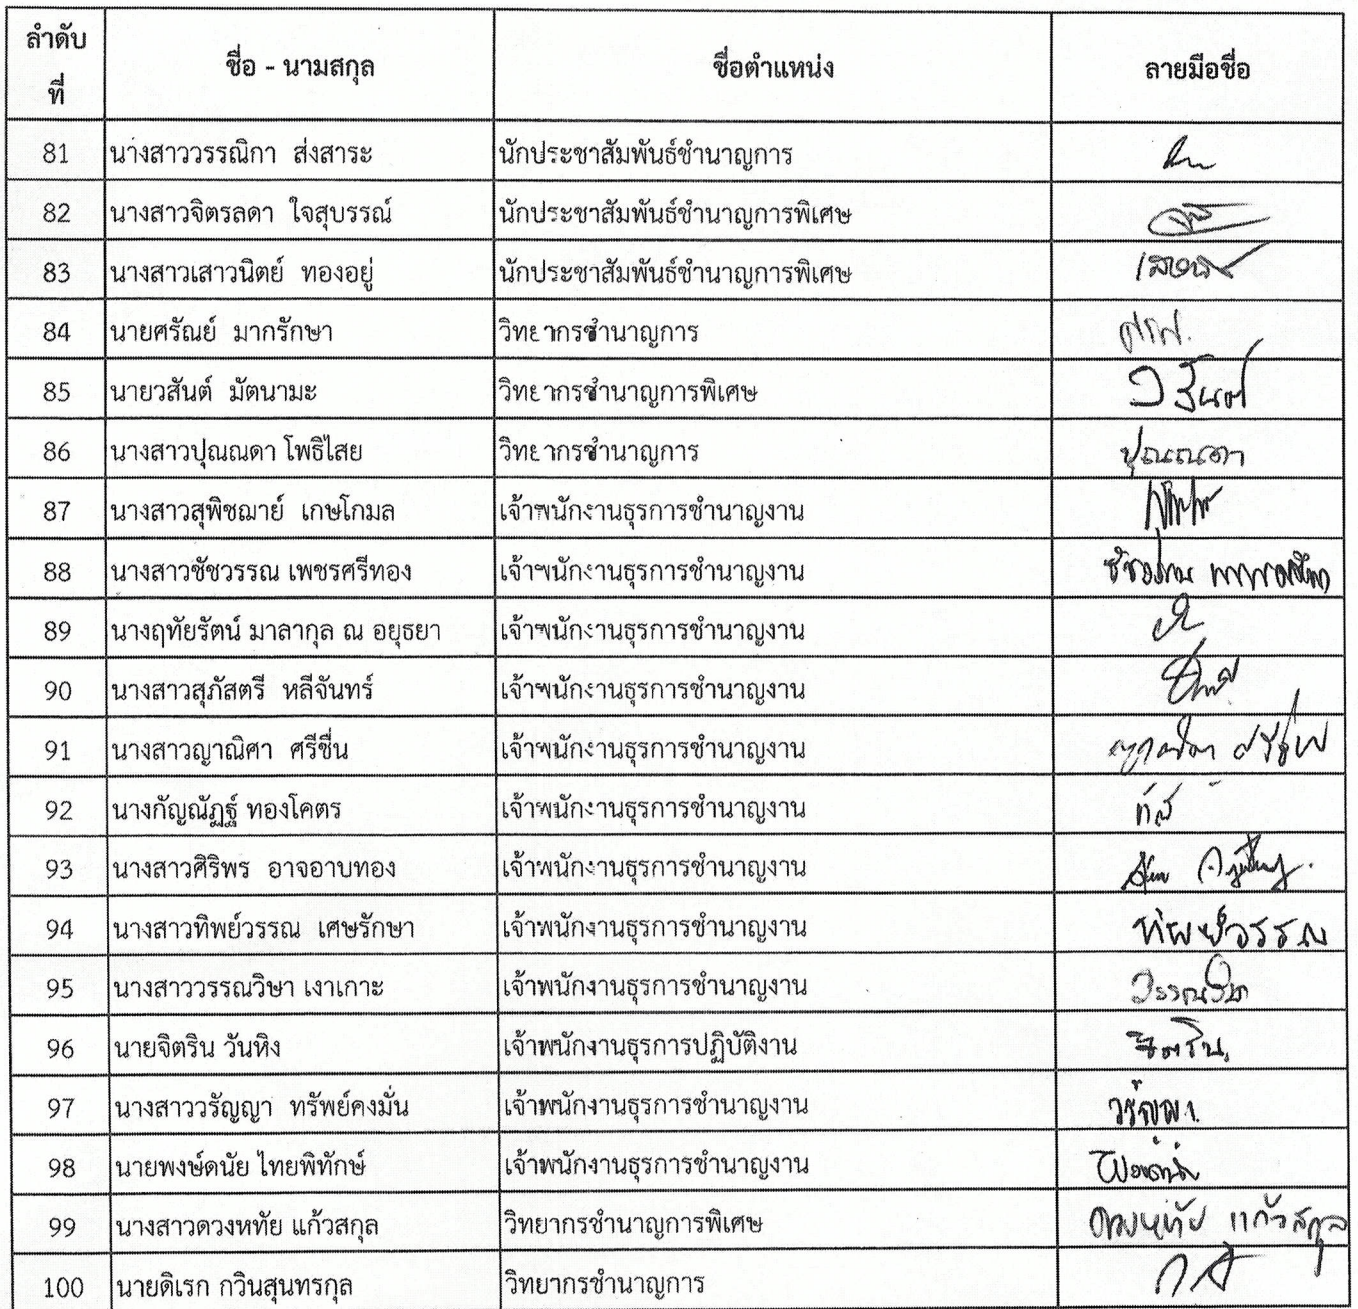 ลำดับที่ ชื่อ - นามสกุล ชื่อตำแหน่ง ลายมือชื่อ
81 นางสาววรรณิกา ส่งสาระ นักประชาสัมพันธ์ชำนาญการ
82 นางสาวจิตรลดา ใจสุบรรณ์ นักประชาสัมพันธ์ชำนาญการพิเศษ
83 นางสาวเสาวนิตย์ ทองอยู่ นักประชาสัมพันธ์ชำนาญการพิเศษ
84 นายศรัณย์ มากรักษา วิทยากรชำนาญการ
85 นายวสันต์ มัตนามะ วิทยากรชำนาญการพิเศษ วสันต์
86 นางสาวปุณณดา โพธิไสย วิทยากรชำนาญการ ปุณณดา
87 นางสาวสุพิชฌาย์ เกษโกมล เจ้าพนักงานธุรการชำนาญงาน
88 นางสาวชัชวรรณ เพชรศรีทอง เจ้าพนักงานธุรการชำนาญงาน
89 นางฤทัยรัตน์ มาลากุล ณ อยุธยา เจ้าพนักงานธุรการชำนาญงาน
90 นางสาวสุภัสตรี หลีจันทร์ เจ้าพนักงานธุรการชำนาญงาน
91 นางสาวญาณิศา ศรีชื่น เจ้าพนักงานธุรการชำนาญงาน ญาณิศา ศรีชื่น
92 นางกัญณัฏฐ์ ทองโคตร เจ้าพนักงานธุรการชำนาญงาน
93 นางสาวศิริพร อาจอาบทอง เจ้าพนักงานธุรการชำนาญงาน
94 นางสาวทิพย์วรรณ เศษรักษา เจ้าพนักงานธุรการชำนาญงาน ทิพย์วรรณ
95 นางสาววรรณวิษา เงาเกาะ เจ้าพนักงานธุรการชำนาญงาน วรรณวิษา
96 นายจิตริน วันหิง เจ้าพนักงานธุรการปฏิบัติงาน จิตริน
97 นางสาววรัญญา ทรัพย์คงมั่น เจ้าพนักงานธุรการชำนาญงาน วรัญญา
98 นายพงษ์ดนัย ไทยพิทักษ์ เจ้าพนักงานธุรการชำนาญงาน
99 นางสาวดวงหทัย แก้วสกุล วิทยากรชำนาญการพิเศษ ดวงหทัย แก้วสกุล
100 นายดิเรก กวินสุนทรกุล วิทยากรชำนาญการ